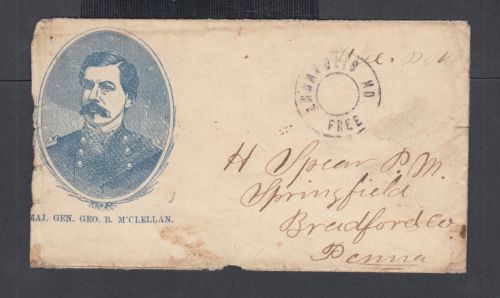 MAJ. GEN. GEO. B. M'CLELLAN.
ANNAPOLIS MD
FREE
H Spear P.M.
Springfield
Bradford Co
Penna